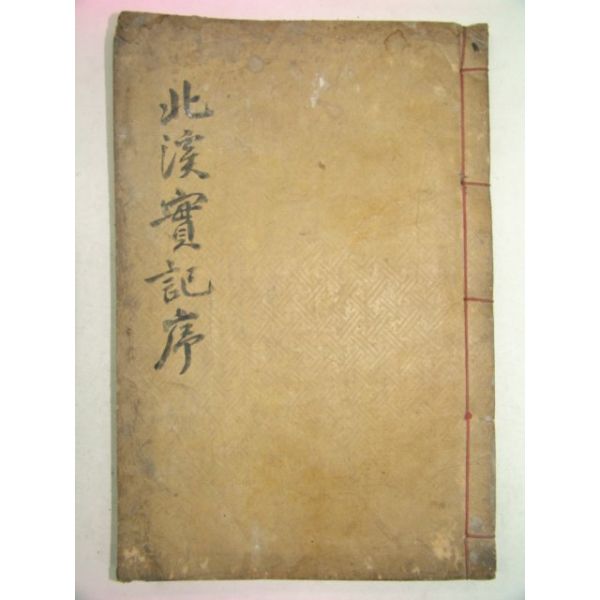 北溪實記序